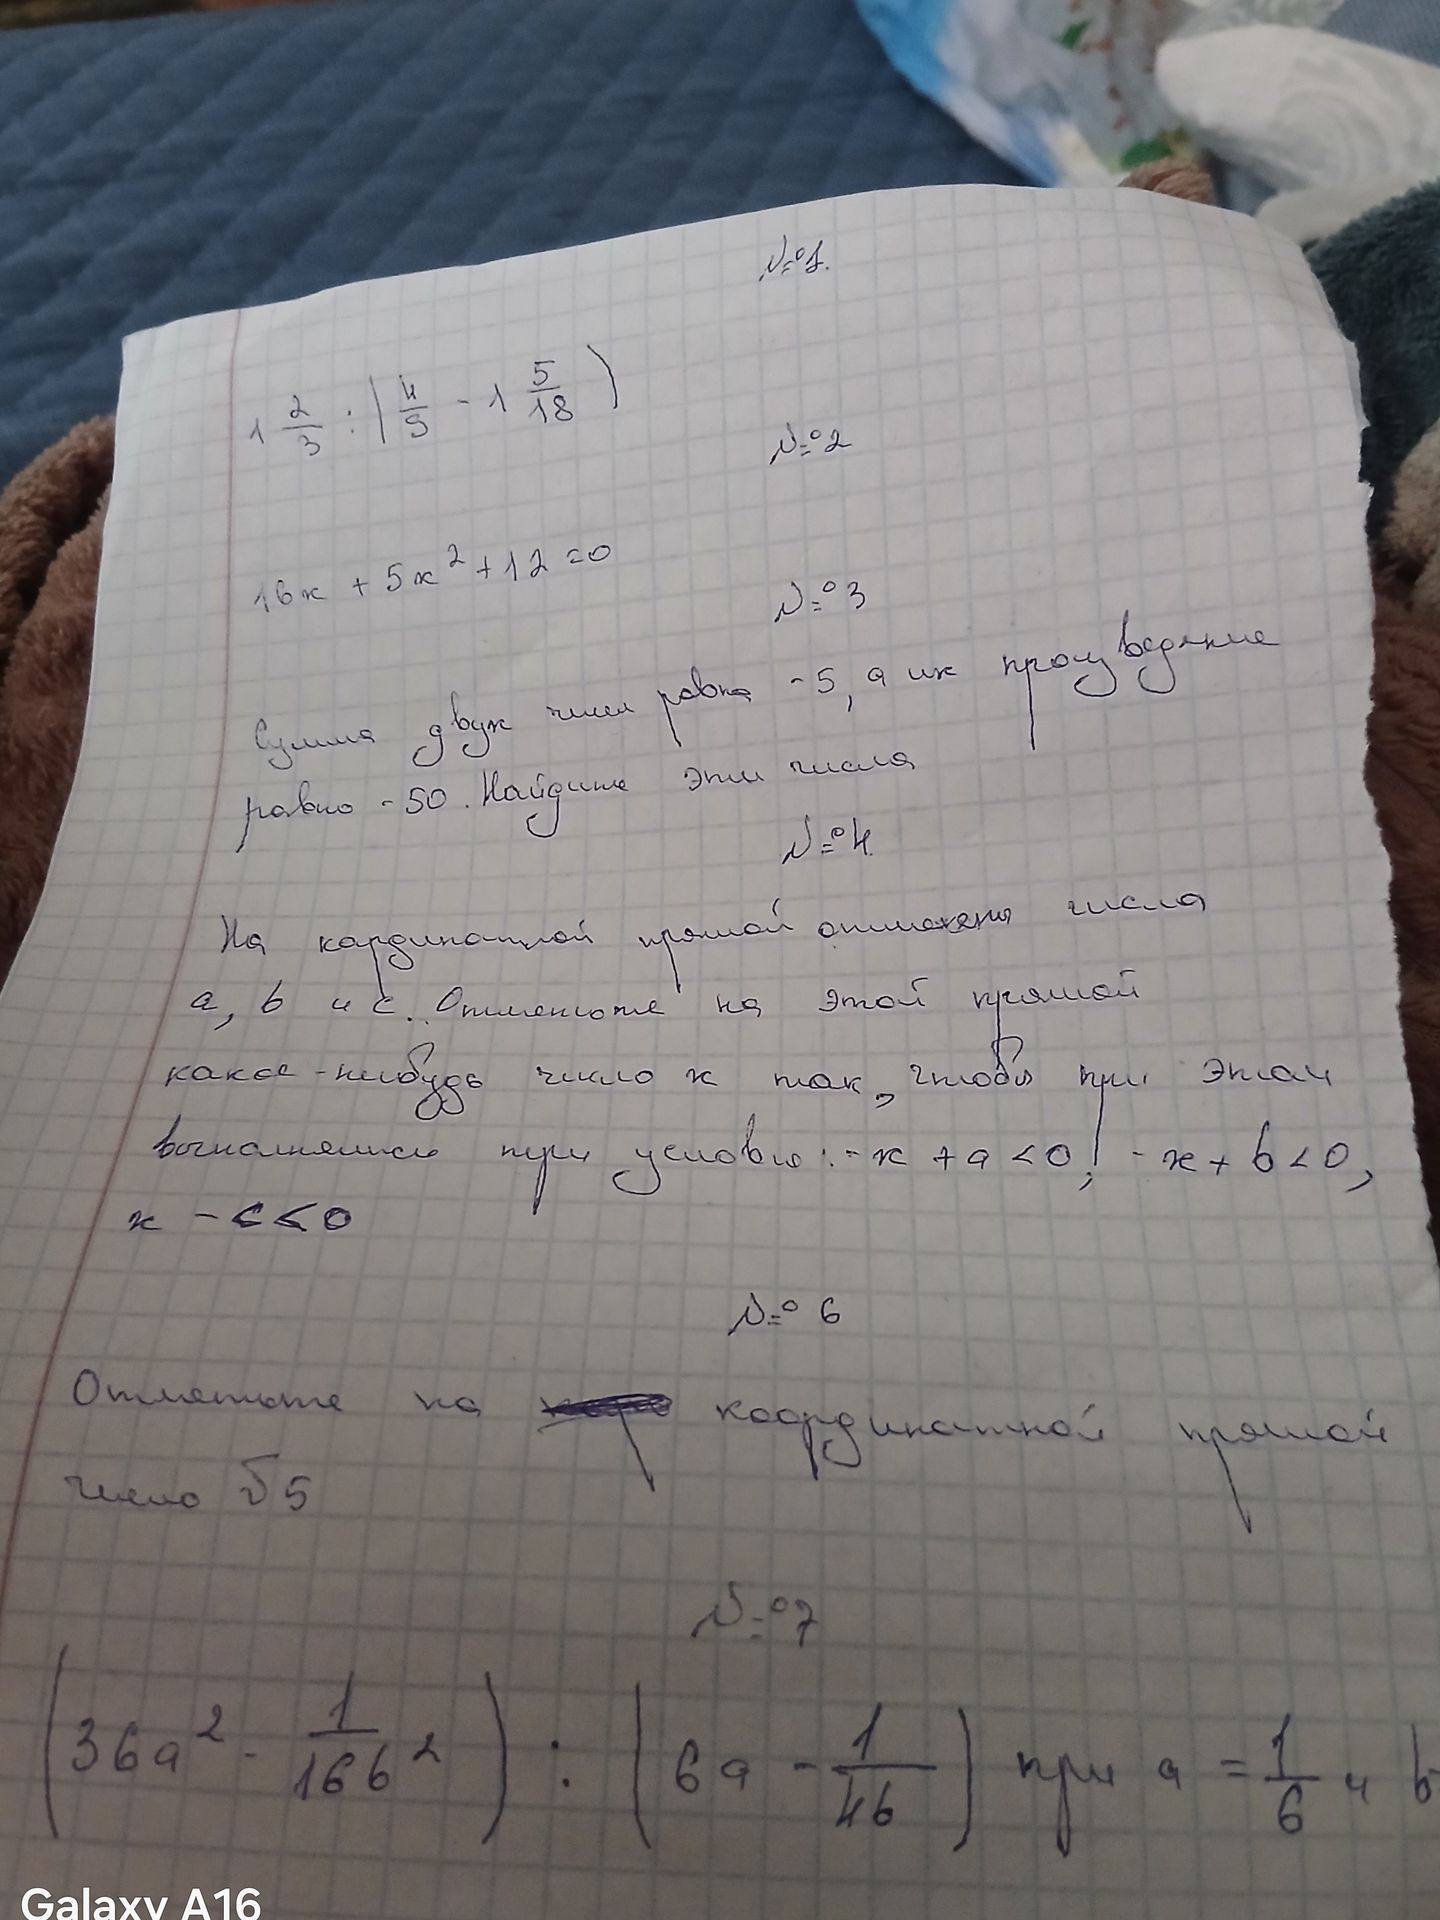 №1.
1 2/3 : (4/9 - 1 5/18)
№2
16x + 5x² + 12 = 0
№3
Сумма двух чисел равна -5, а их произведение
равно -50. Найдите эти числа
№4.
На кординатной прямой отмечены числа
a, b и c. Отметьте на этой прямой
какое-нибудь число x так, чтобы при этом
выполнялись три условю: -x + a < 0, -x + b < 0,
x - c < 0
№6
Отметьте на координатной прямой
число √5
№7
(36a² - 1/16b²) : (6a - 1/4b) при a = 1/6 и b
Galaxy A16